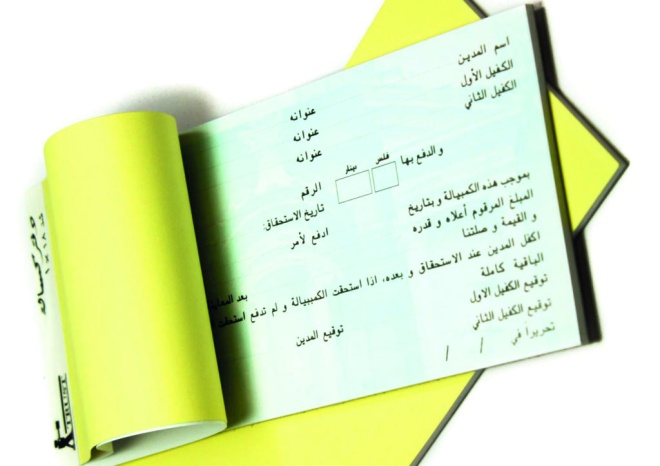 اسم المدين
الكفيل الأول
الكفيل الثاني
عنوانه
عنوانه
عنوانه
والدفع بها
فلس دينار
الرقم
تاريخ الاستحقاق:
ادفع لأمر
بموجب هذه الكمبيالة و بتاريخ
المبلغ المرقوم أعلاه و قدره
و القيمة و صلتنا
بعد المعاينة
اكفل المدين عند الاستحقاق و بعده، اذا استحقت الكمبيالة و لم تدفع استحقت
الباقية كاملة
توقيع الكفيل الاول
توقيع الكفيل الثاني
توقيع المدين
تحريراً في / /
دفتر كمبيالة
TRUST